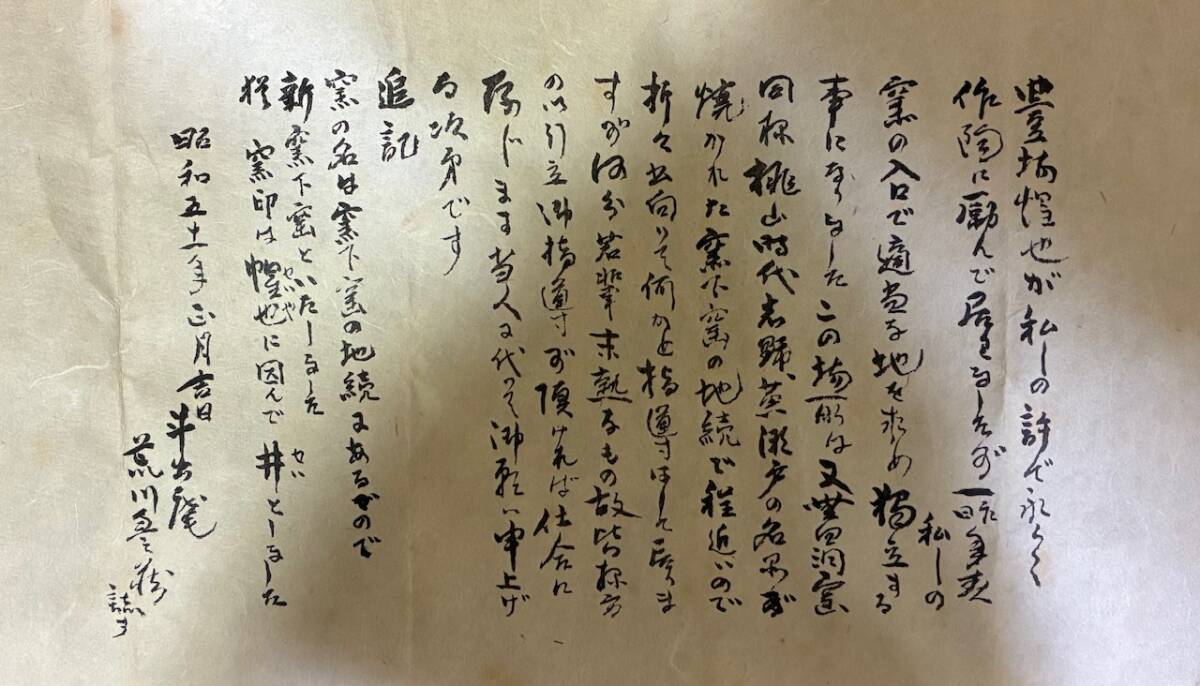 豊場惺也が私しの許で永らく
作陶に励んで居りましたが一昨年夏
私しの
窯の入口で適当な地を求め独立する
事になりました この場所は又無田洞窯
同様桃山時代志野、黄瀬戸の名品が
焼かれた窯下窯の地続で程近いので
折々出向いて何かと指導はして居りま
すが何分若輩未熟なもの故皆様方
の御引立御指導が頂ければ仕合に
存じます当人に代って御願い申上げ
る次第です
追記
窯の名は窯下窯の地続にあるので
新窯下窯といたしました
せいや せい
猶 窯印は惺也に因んで井としました
昭和五十一年正月吉日
牛歩庵
荒川豊蔵
誌す